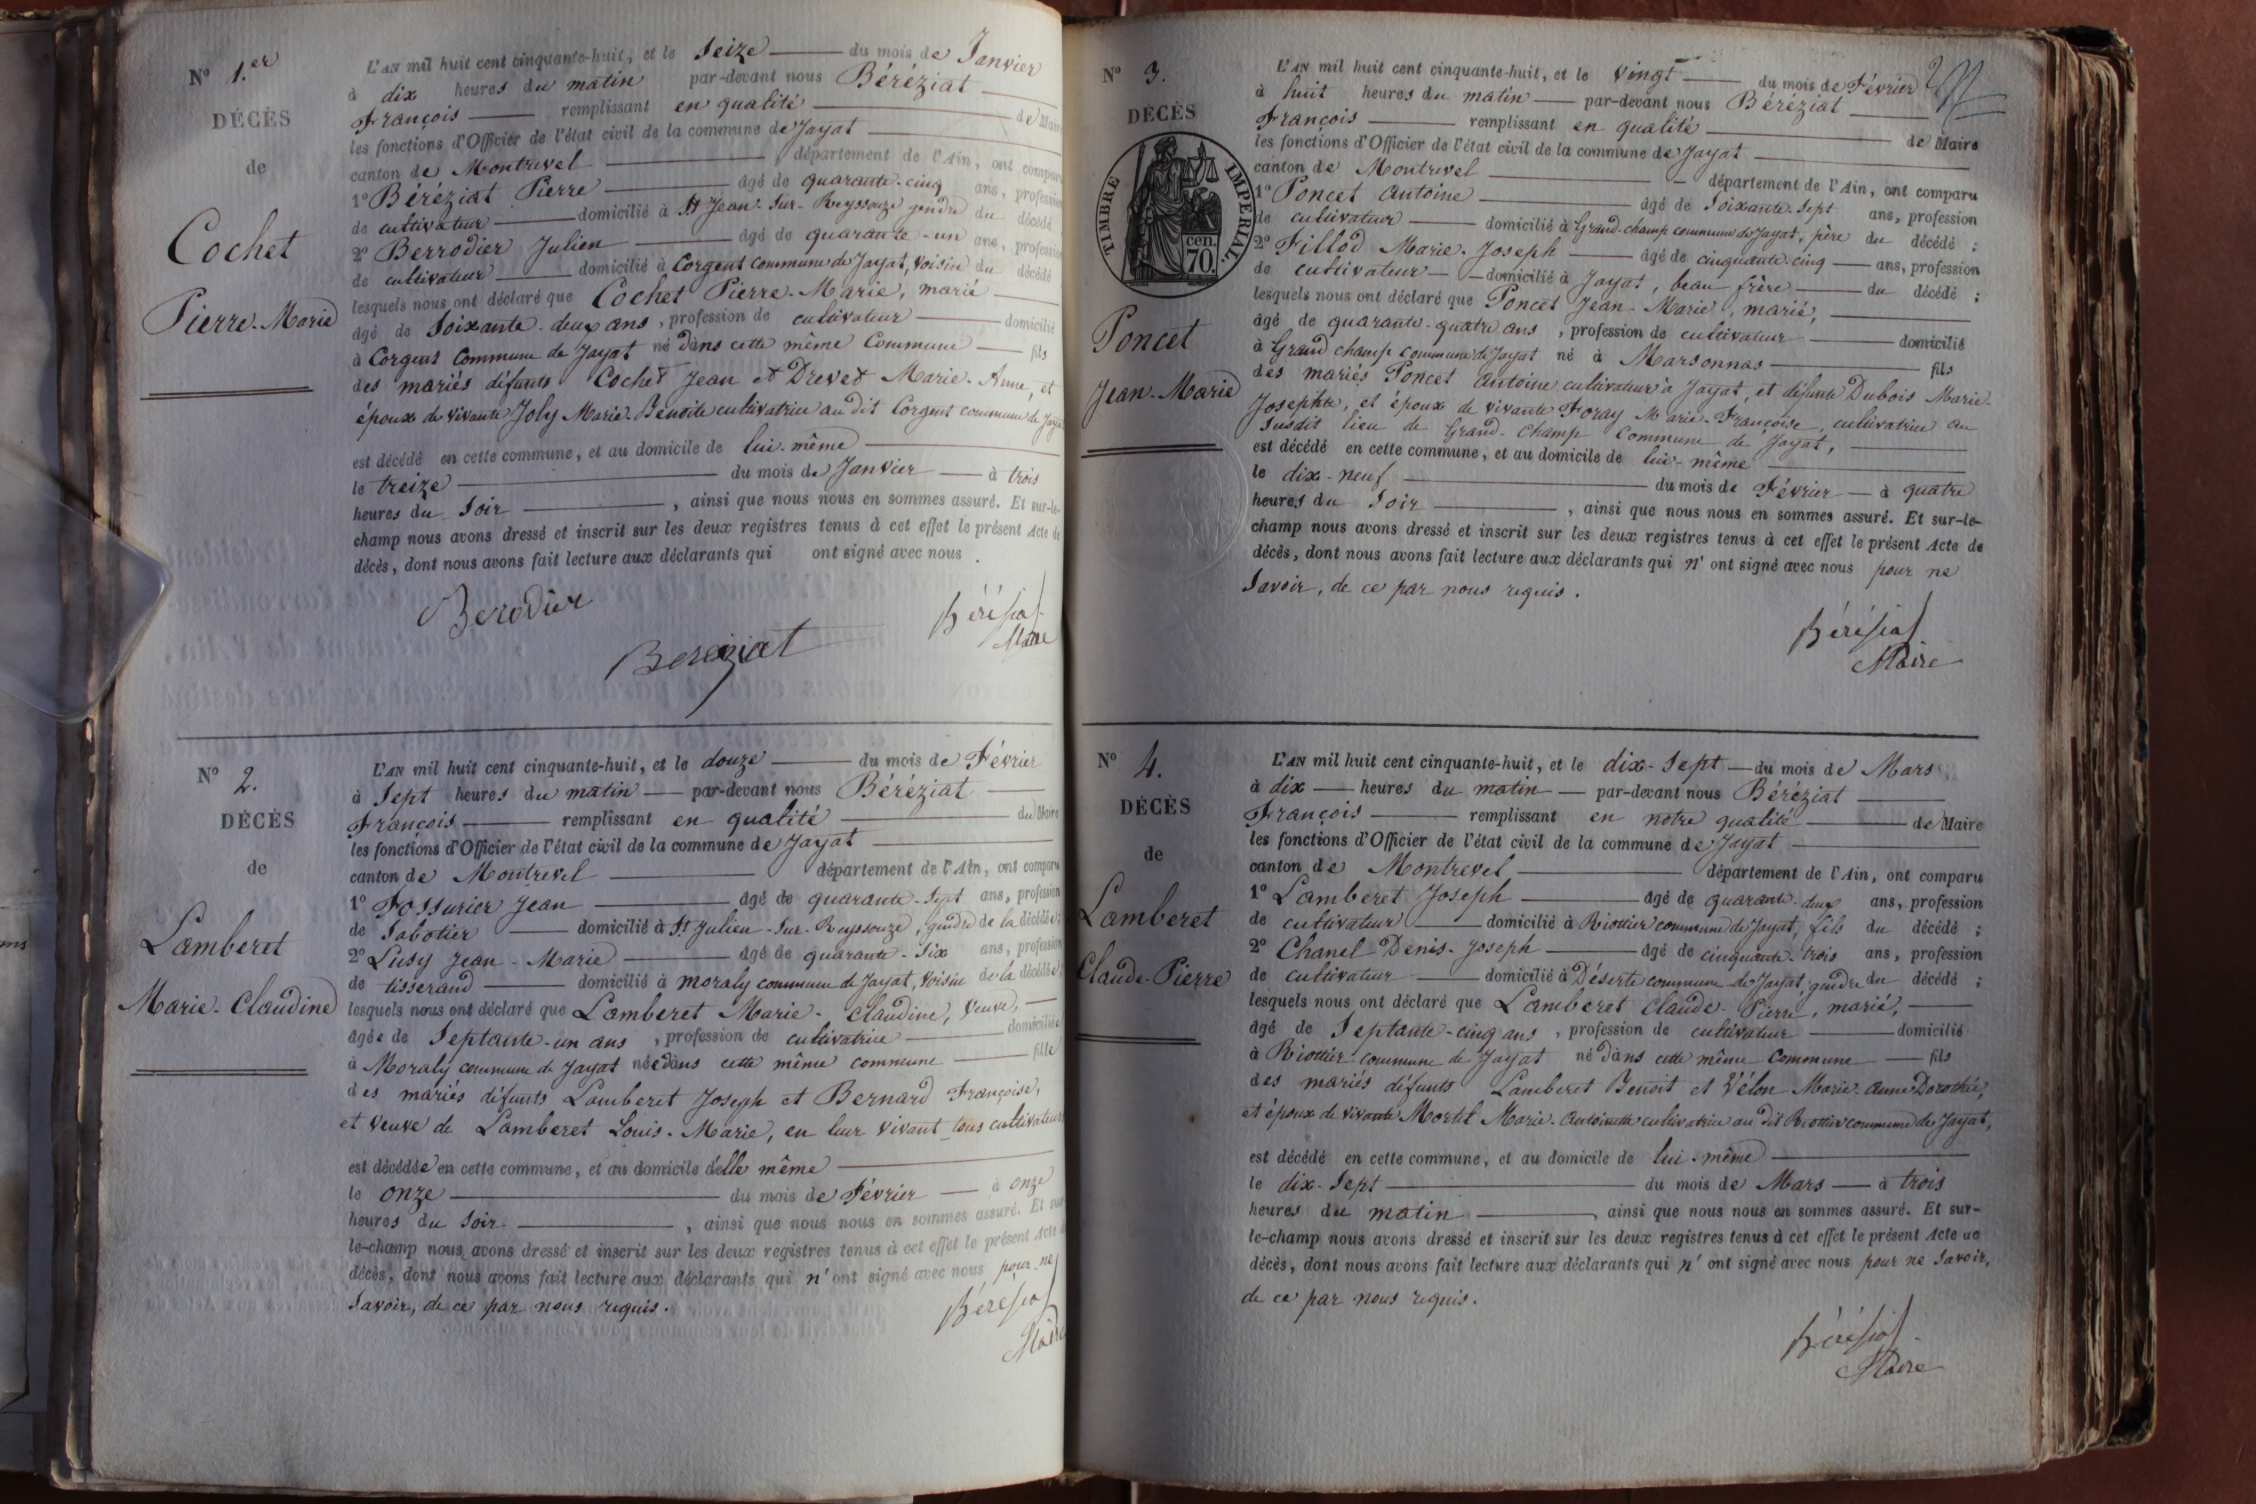 N° 1.er
DÉCÈS
de
Cochet
Pierre-Marie
L'AN mil huit cent cinquante-huit, et le Seize du mois de Janvier
à dix heures du matin par-devant nous Béréziat
François remplissant en qualité de Maire
les fonctions d'Officier de l'état civil de la commune de Jayat
canton de Montrevel département de l'Ain, ont comparu
1° Béréziat Pierre âgé de quarante-cinq ans, profession
de cultivateur domicilié à St Jean-Sur-Reyssouze gendre du décédé
2° Berrodier Julien âgé de quarante-un ans, profession
de cultivateur domicilié à Corgent commune de Jayat, voisin du décédé
lesquels nous ont déclaré que Cochet Pierre-Marie, marié
âgé de Soixante-deux ans, profession de cultivateur domicilié
à Corgent Commune de Jayat né dans cette même Commune fils
des mariés défunts Cochet Jean et Drevet Marie-Anne, et
époux de vivante Joly Marie-Benoite cultivatrice au dit Corgent commune de Jayat
est décédé en cette commune, et au domicile de lui-même
le treize du mois de Janvier à trois
heures du Soir, ainsi que nous nous en sommes assuré. Et sur-le-
champ nous avons dressé et inscrit sur les deux registres tenus à cet effet le présent Acte de
décès, dont nous avons fait lecture aux déclarants qui ont signé avec nous.
Berodier
Bereziat
Bérésiat
Maire
N° 2.
DÉCÈS
de
Lamberet
Marie-Claudine
L'AN mil huit cent cinquante-huit, et le douze du mois de Février
à Sept heures du matin par-devant nous Béréziat
François remplissant en qualité de Maire
les fonctions d'Officier de l'état civil de la commune de Jayat
canton de Montrevel département de l'Ain, ont comparu
1° Fossurier Jean âgé de quarante-Sept ans, profession
de Sabotier domicilié à St Julien-Sur-Reyssouze, gendre de la décédée;
2° Lusy Jean-Marie âgé de quarante-Six ans, profession
de tisserand domicilié à Moraly commune de Jayat, voisin de la décédée;
lesquels nous ont déclaré que Lamberet Marie-Claudine, Veuve,
âgée de Septante-un ans, profession de cultivatrice domiciliée
à Moraly commune de Jayat née dans cette même commune fille
des mariés défunts Lamberet Joseph et Bernard Françoise,
et Veuve de Lamberet Louis-Marie, en leur vivant tous cultivateurs
est décédée en cette commune, et au domicile d'elle même
le onze du mois de Février à onze
heures du Soir, ainsi que nous nous en sommes assuré. Et sur
le-champ nous avons dressé et inscrit sur les deux registres tenus à cet effet le présent Acte de
décès, dont nous avons fait lecture aux déclarants qui n'ont signé avec nous pour ne
Savoir, de ce par nous requis.
Bérésiat
Maire
N° 3.
DÉCÈS
TIMBRE IMPERIAL.
70. cen.
Poncet
Jean-Marie
L'AN mil huit cent cinquante-huit, et le Vingt du mois de Février
à huit heures du matin par-devant nous Béréziat
François remplissant en qualité de Maire
les fonctions d'Officier de l'état civil de la commune de Jayat
canton de Montrevel département de l'Ain, ont comparu
1° Poncet Antoine âgé de Soixante-Sept ans, profession
de cultivateur domicilié à Grand-champ commune de Jayat, père du décédé;
2° Fillod Marie-Joseph âgé de cinquante-cinq ans, profession
de cultivateur domicilié à Jayat, beau frère du décédé;
lesquels nous ont déclaré que Poncet Jean-Marie, marié,
âgé de quarante-quatre ans, profession de cultivateur domicilié
à Grand champ commune de Jayat né à Marsonnas fils
des mariés Poncet Antoine cultivateur à Jayat, et défunte Dubois Marie-
Josephte, et époux de vivante Foray Marie-Françoise, cultivatrice au
Susdit lieu de Grand-Champ Commune de Jayat,
est décédé en cette commune, et au domicile de lui-même
le dix-neuf du mois de Février à quatre
heures du Soir, ainsi que nous nous en sommes assuré. Et sur-le-
champ nous avons dressé et inscrit sur les deux registres tenus à cet effet le présent Acte de
décès, dont nous avons fait lecture aux déclarants qui n'ont signé avec nous pour ne
Savoir, de ce par nous requis.
Bérésiat
Maire
N° 4.
DÉCÈS
de
Lamberet
Claude-Pierre
L'AN mil huit cent cinquante-huit, et le dix-Sept du mois de Mars
à dix heures du matin par-devant nous Béréziat
François remplissant en notre qualité de Maire
les fonctions d'Officier de l'état civil de la commune de Jayat
canton de Montrevel département de l'Ain, ont comparu
1° Lamberet Joseph âgé de quarante-deux ans, profession
de cultivateur domicilié à Riottier commune de Jayat, fils du décédé;
2° Chanel Denis-Joseph âgé de cinquante-trois ans, profession
de cultivateur domicilié à Déserte commune de Jayat, gendre du décédé;
lesquels nous ont déclaré que Lamberet Claude-Pierre, marié,
âgé de Septante-cinq ans, profession de cultivateur domicilié
à Riottier commune de Jayat né dans cette même Commune fils
des mariés défunts Lamberet Benoit et Vélon Marie-Anne-Dorothée,
et époux de vivante Mortel Marie-Antoinette cultivatrice au dit Riottier commune de Jayat,
est décédé en cette commune, et au domicile de lui-même
le dix-Sept du mois de Mars à trois
heures du matin, ainsi que nous nous en sommes assuré. Et sur-
le-champ nous avons dressé et inscrit sur les deux registres tenus à cet effet le présent Acte de
décès, dont nous avons fait lecture aux déclarants qui n'ont signé avec nous pour ne Savoir,
de ce par nous requis.
Bérésiat
Maire